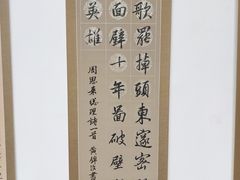 歌罷掉頭東邃密
面壁十年圖破壁
英雄
周恩來總理詩一首